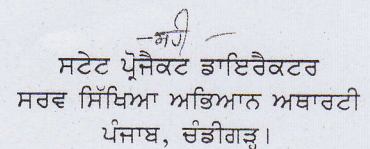 -ਸਹੀ-
ਸਟੇਟ ਪ੍ਰੋਜੈਕਟ ਡਾਇਰੈਕਟਰ
ਸਰਵ ਸਿੱਖਿਆ ਅਭਿਆਨ ਅਥਾਰਟੀ
ਪੰਜਾਬ, ਚੰਡੀਗੜ੍ਹ।